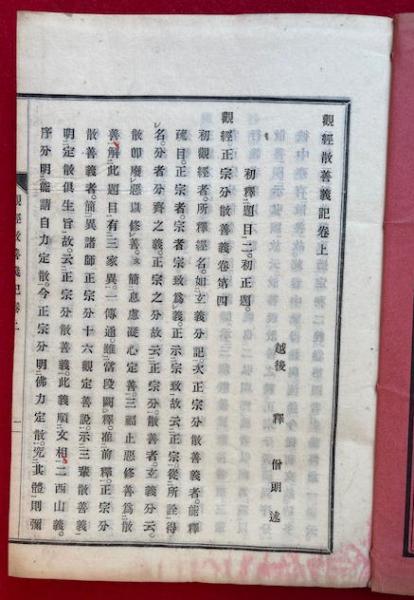 觀經散善義記卷上
越後 釋 僧明 述
初釋題目二。初正題。
觀經正宗分散善義卷第四
初觀經者。所釋經名。如玄義分記。次正宗分散善義者。能釋
疏目。正宗者。宗者宗致爲義。正示宗致故云正宗。從所詮得
名。分者分齊之義。正宗之分故云正宗分。散善者。玄義分云。
散卽廢惡以修善。簡息慮凝心定善。三福止惡修善爲散
善解。此題目有三家異。一傳通。雖當段闕釋。准前釋。正宗分
散善義者。簡異諸師正宗分十六觀定善說。示三輩散善義
明定散俱生旨故。云正宗分散善義。此義順文相。二西山義。
序分明能請自力定散。今正宗分明佛力定散。究其體則彌
觀經散善義記卷上